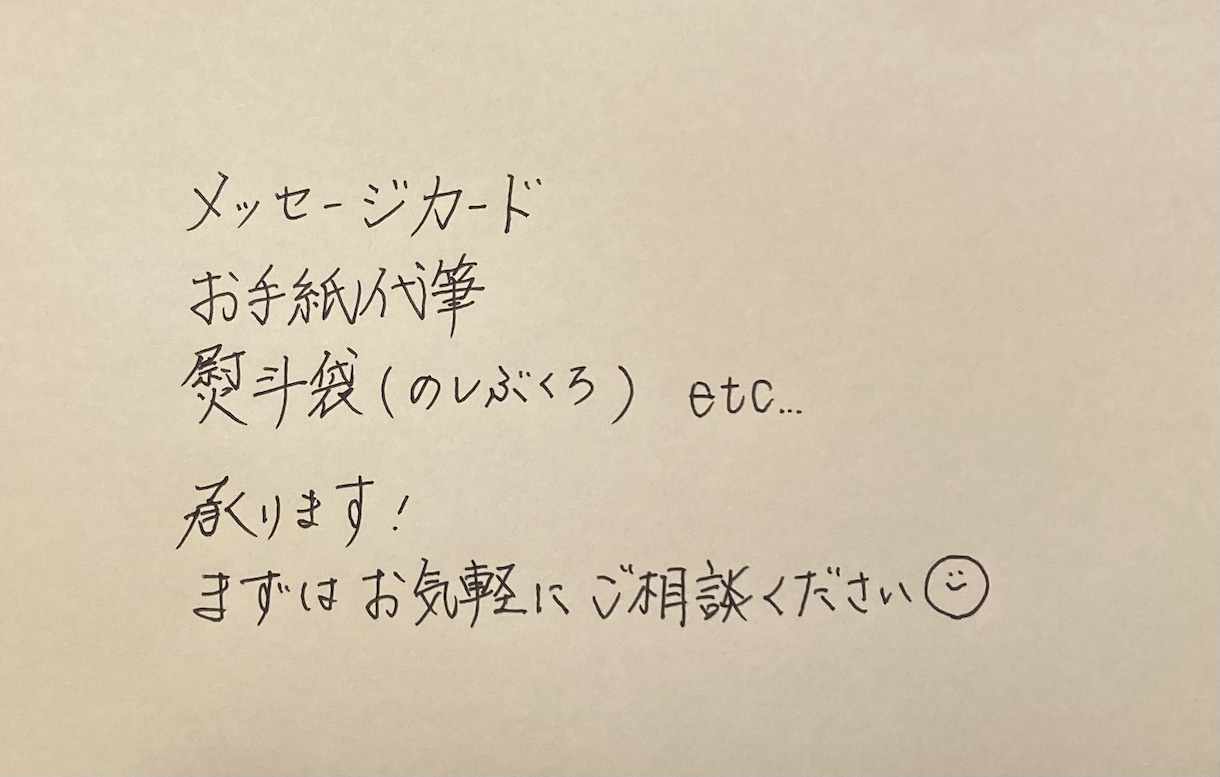 メッセージカード
お手紙代筆
熨斗袋(のしぶくろ) etc...
承ります!
まずはお気軽にご相談ください